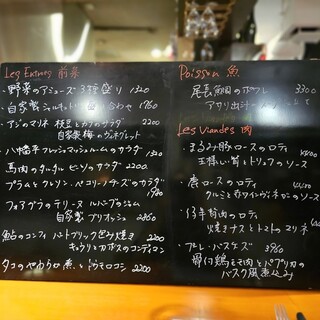 Les Entrées 前菜
・野菜のアミューズ 3種盛り 1320
・自家製シャルキュトリ 合わせ 1760
・アジのマリネ 枝豆と のサラダ 2200
自家製梅のヴィネグレット
・八幡平マッシュルームのサラダ 1320
・馬肉のタルタル ビーツのサラダ 2200
・プラムとクレソン・ペコリーノチーズのサラダ
フォアグラのテリーヌ ルバーブのジャム
自家製ブリオッシュ 2860
鮎のコンフィ パートブリック包み焼き 2200
キュウリとカボスのコンディマン
タコのやわらか煮と トウモロコシ 2200
Poisson 魚
尾長鯛のポワレ 3300
アサリ出汁
Les Viandes 肉
・まるみ豚ロースのロティ
玉ねぎと トリュフのソース
・鹿ロースのロティ
クルミと赤ワインヴィネガーのソース
・仔羊 肉のロティ
焼きナスとトマトのミルネ
・プレ・バスケーズ 3960
骨付鶏モモ肉とパプリカの
バスク風煮込み